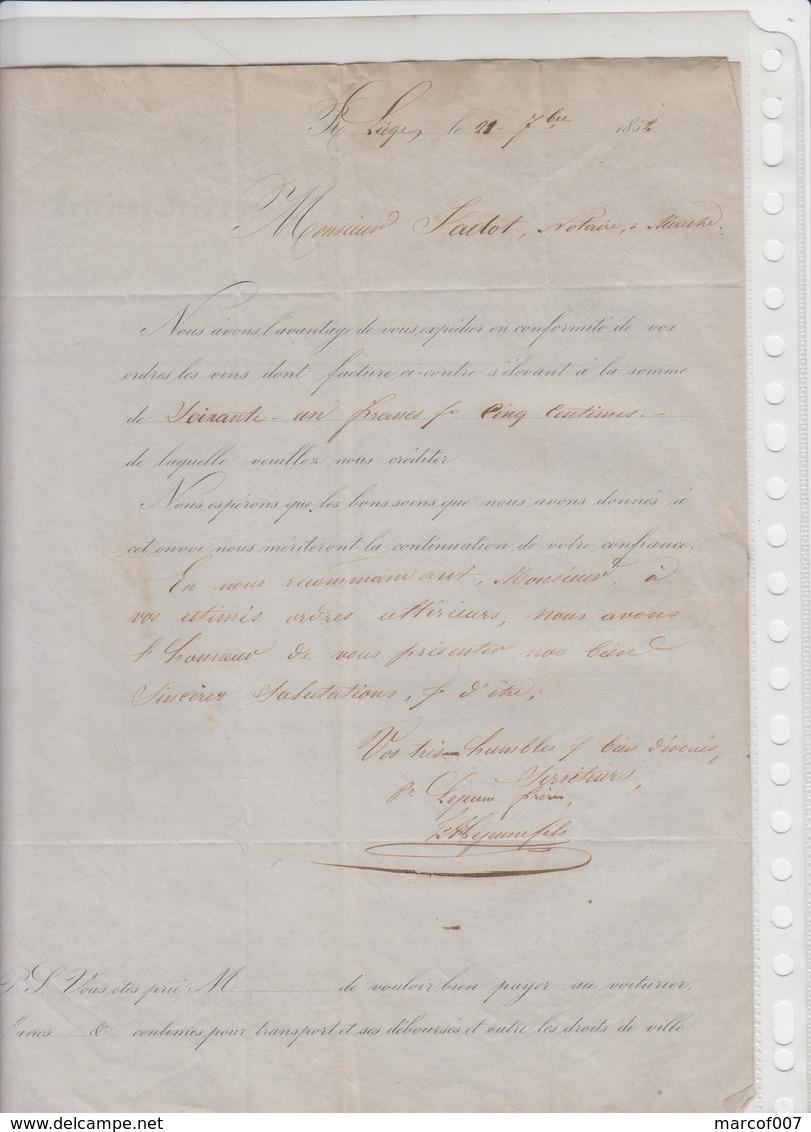 Liége, le 21 7bre 1852
Monsieur Jadot, Notaire, à Marche.
Nous avons l'avantage de vous expédier en conformité de vos
ordres les vins dont facture ci-contre s'élevant à la somme
de Soixante-un francs & Cinq Centimes.-
de laquelle veuillez nous créditer
Nous espérons que les bons soins que nous avons donnés à
cet envoi nous mériteront la continuation de votre confiance,
En nous recommandant, Monsieur, à
vos estimés ordres ultérieurs, nous avons
l'honneur de vous présenter nos bien
sincères salutations, & d'être,
Vos très-humbles & bien dévoués,
Serviteurs,
Pr Lejeune frères,
Lejeune fils
P.S. Vous êtes prié M de vouloir bien payer au voiturier,
francs & centimes pour transport et ses déboursés et outre les droits de ville.
delcampe.net
marcof007